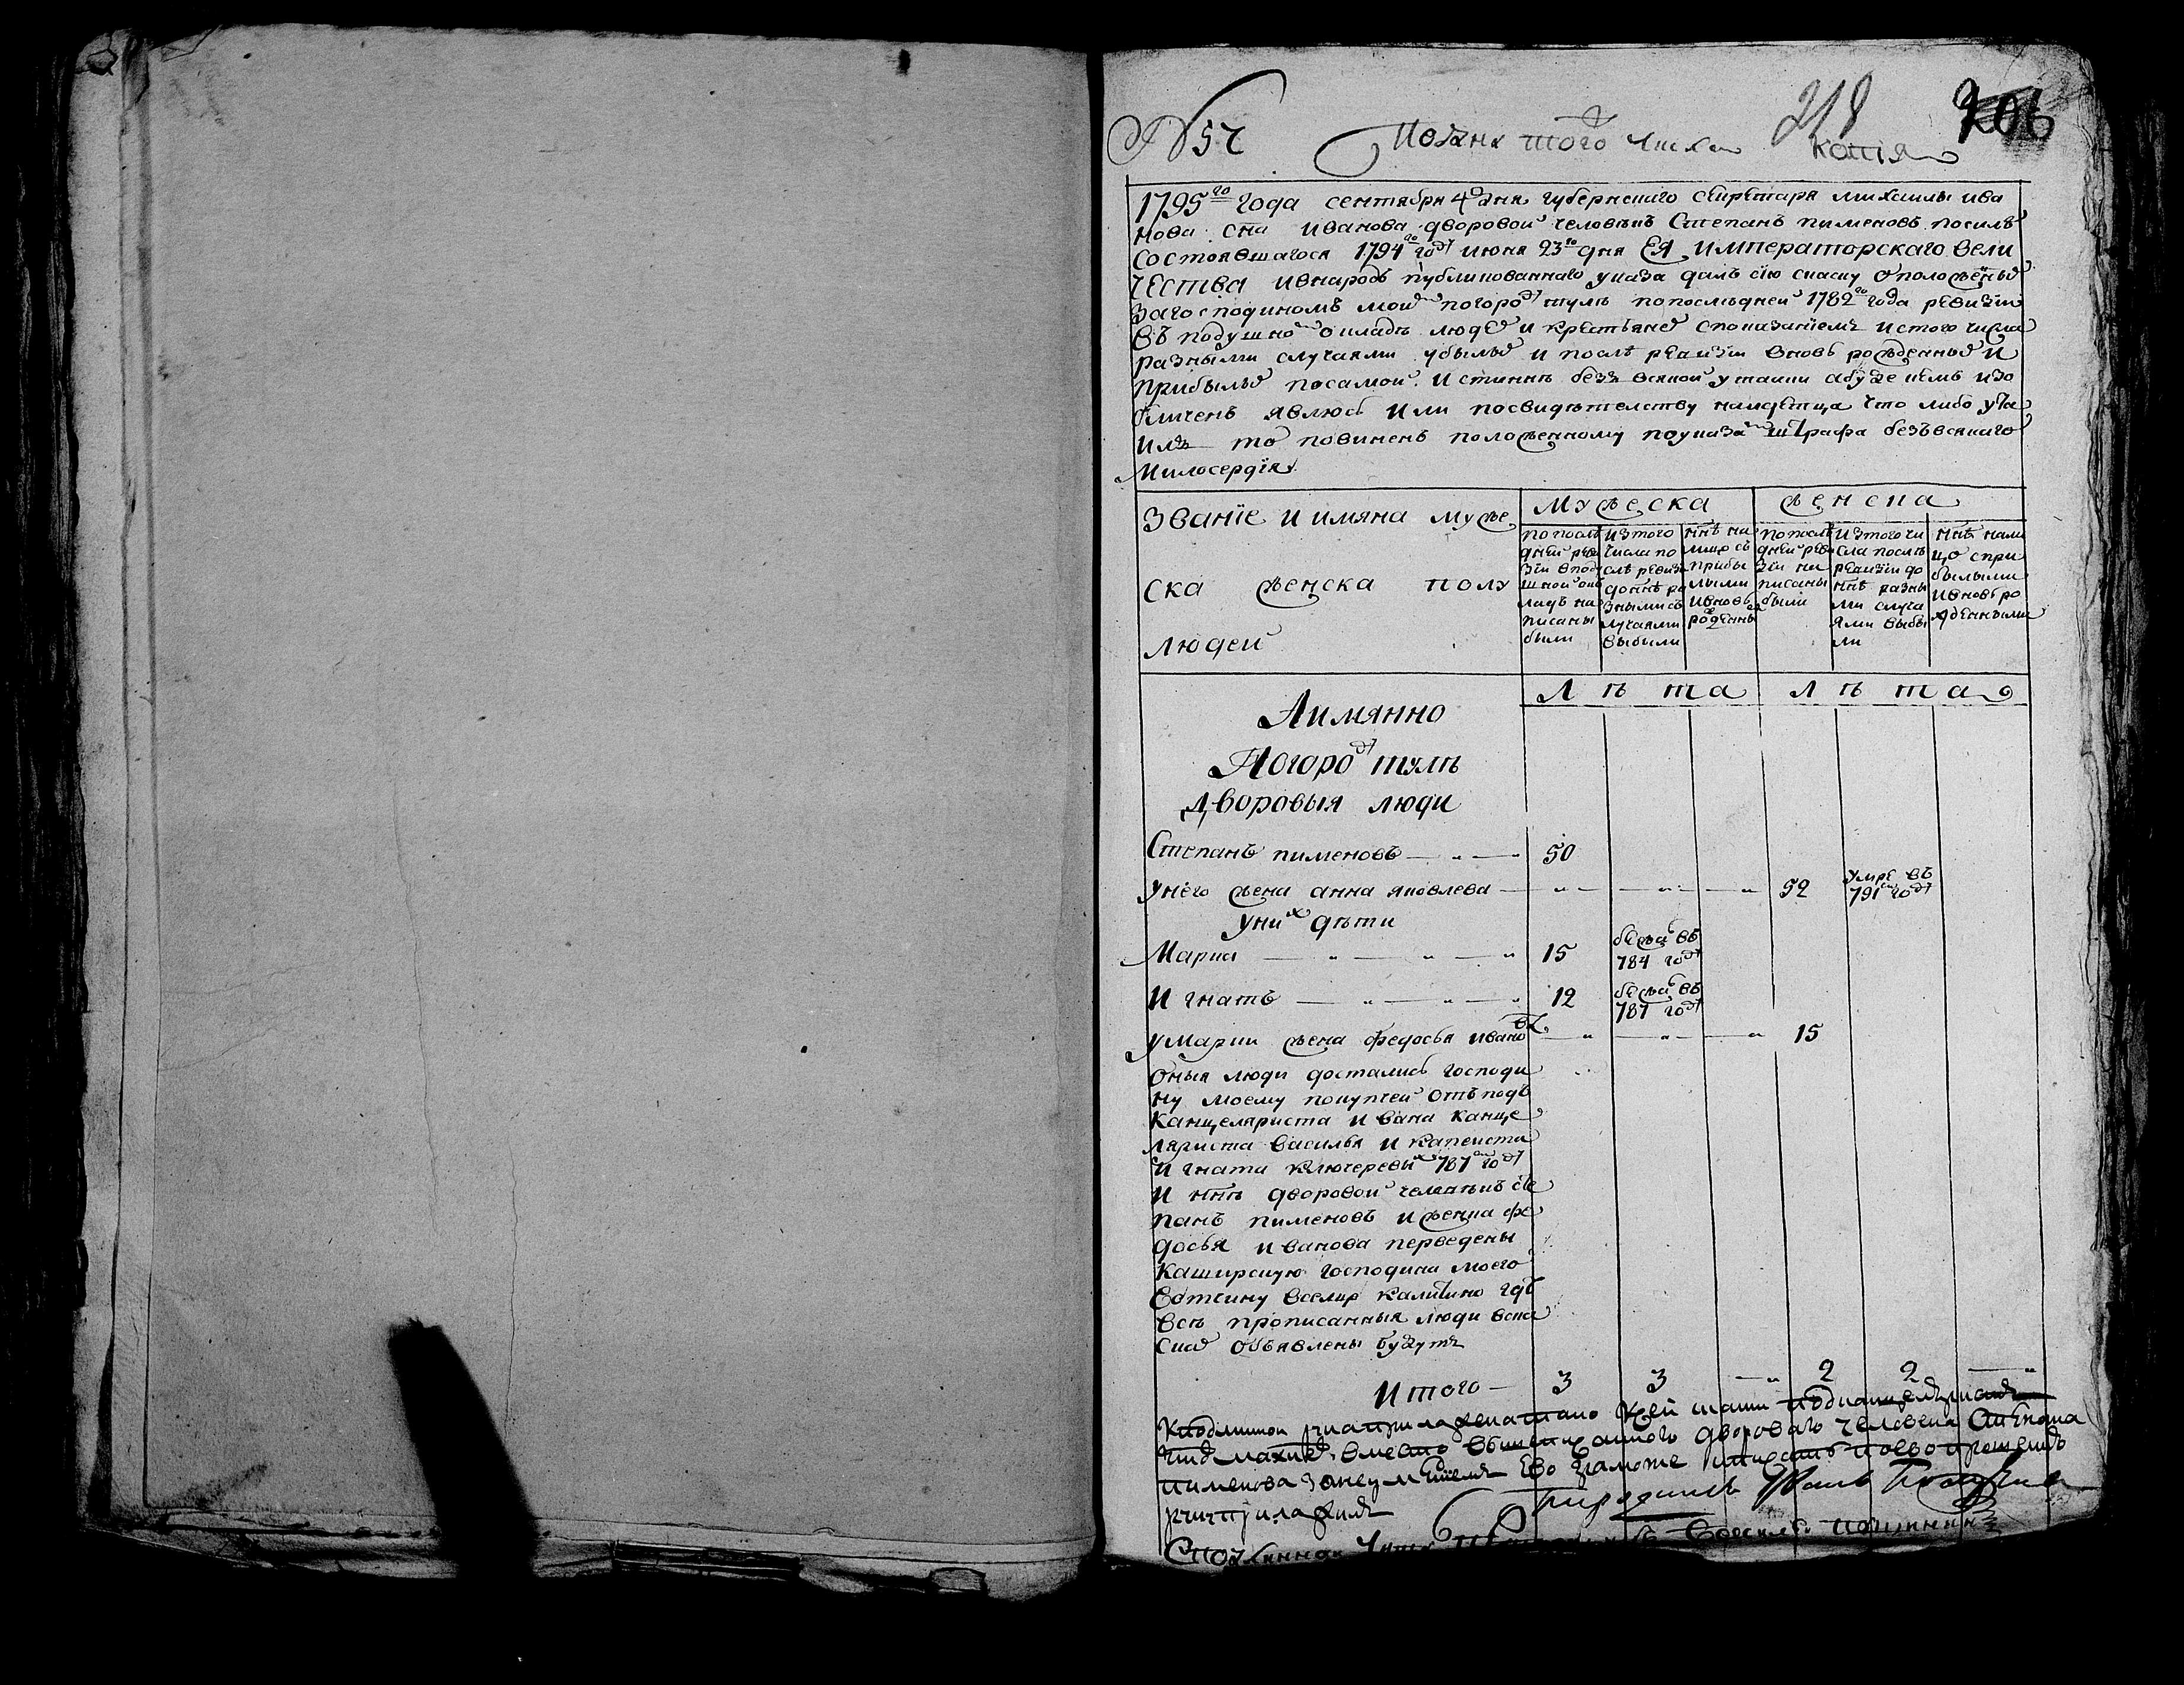 № 57 того копія 218
1795го года сентября 4 дня губернскаго секретаря михаилы ива
нова сна иванова дворовой человѣкъ Степанъ пименовъ посилѣ
состоявшагося 1794го году июня 23го дня ЕЯ императорскаго вели
чества ивнародъ публикованнаго указа далъ сію скаску оположенных
загосподиномъ моим погороду тулѣ попоследней 1782го года ревизіи
въ подушном окладѣ людех и крестьянех споказаніемъ истого числа
разными случаями убылых и послѣ ревизіи вновь рожденных и
прибылых посамой истиннѣ безъ всякой утаики абуде кемъ изо
бличенъ явлюсь или посвидѣтелству
то повиненъ положенному поуказам штрафа безъвсякаго
милосердія
Званіе и имяна муже
ска женска полу
людей
мужеска женска
попослѣ
дней реви
зіи впод
шной ок
ладъ на
писаны
были
изтого
числа по
слѣ ревизи
доннѣ ра
зными с
лучаями
выбыли
ннѣ на
лицо съ
прибы
лыми
ивновь
рожденны
попослѣ
дней реви
зіи на
писаны
были
изтого чи
сла послѣ
ревизіи до
ннѣ разны
ми случа
ями выбы
ли
ннѣ нали
цо спри
былыми
ивновь ро
жденными
Лѣта Лѣта
Аимянно
Погороду тулѣ
дворовыя люди
Степанъ пименовъ — „ — „ 50
унего жена анна яковлева — „ — „ — „ 52 умре въ 791м году
уних дѣти
Марка — „ — „ — „ 15 бежал въ 784 году
Игнатъ — „ — „ — „ 12 бежал въ 787 году
умарки жена федосья иванова — „ — „ — „ 15
оныя люди достались господи
ну моему покупкой отъподъ
канцеляриста ивана канце
ляриста василья и капеиста
игната ключеревых 787м году
и ннѣ дворовой человѣкъ сте
панъ пименовъ и женка фе
досья иванова переведены
каширскую господина моего
вотчину вселцо калитино гдѣ
всѣ прописанныя люди вска
ске объявлены будутъ
Итого — 3 3 — „ 2 2 — „
вместо дворового человека Степана
пименова занеумениемъ ево грамоте поево прошению
руку приложилъ